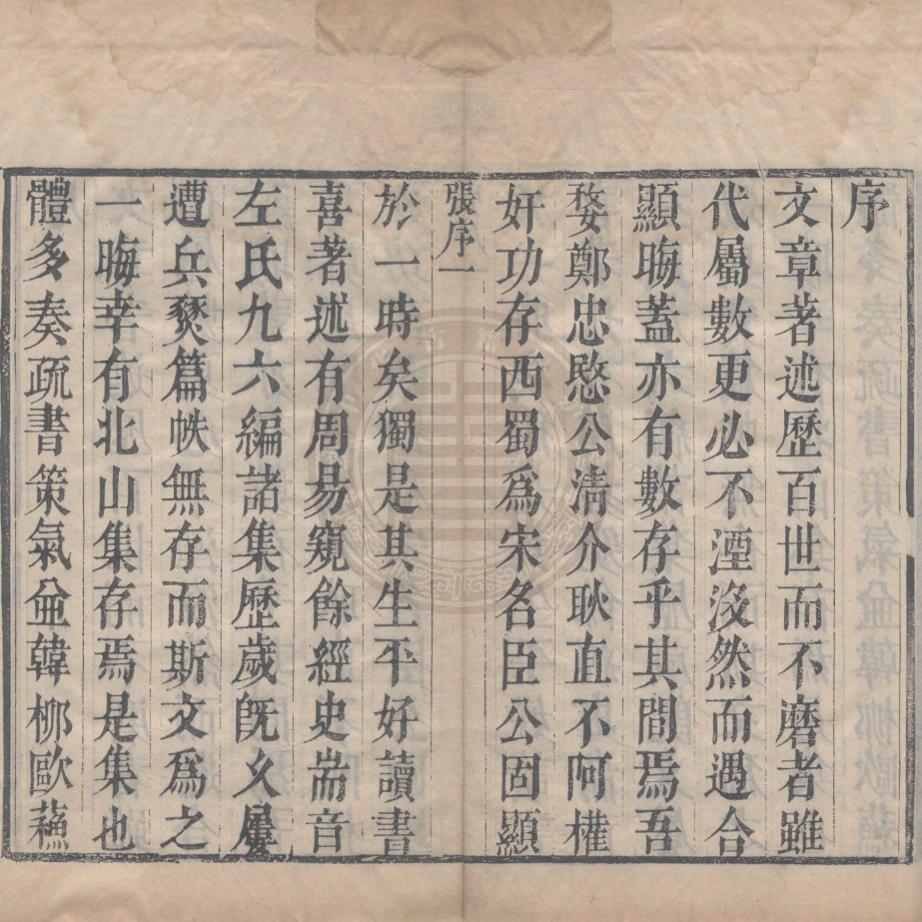 序
文章著述歷百世而不磨者雖
代屬數更必不湮沒然而遇合
顯晦蓋亦有數存乎其間焉吾
婺鄭忠愍公淸介耿直不阿權
奸功存西蜀爲宋名臣公固顯
張序一
於一時矣獨是其生平好讀書
喜著述有周易窺餘經史耑音
左氏九六編諸集歷歲旣久屢
遭兵燹篇帙無存而斯文爲之
一晦幸有北山集存焉是集也
體多奏疏書策氣並韓柳歐蘓